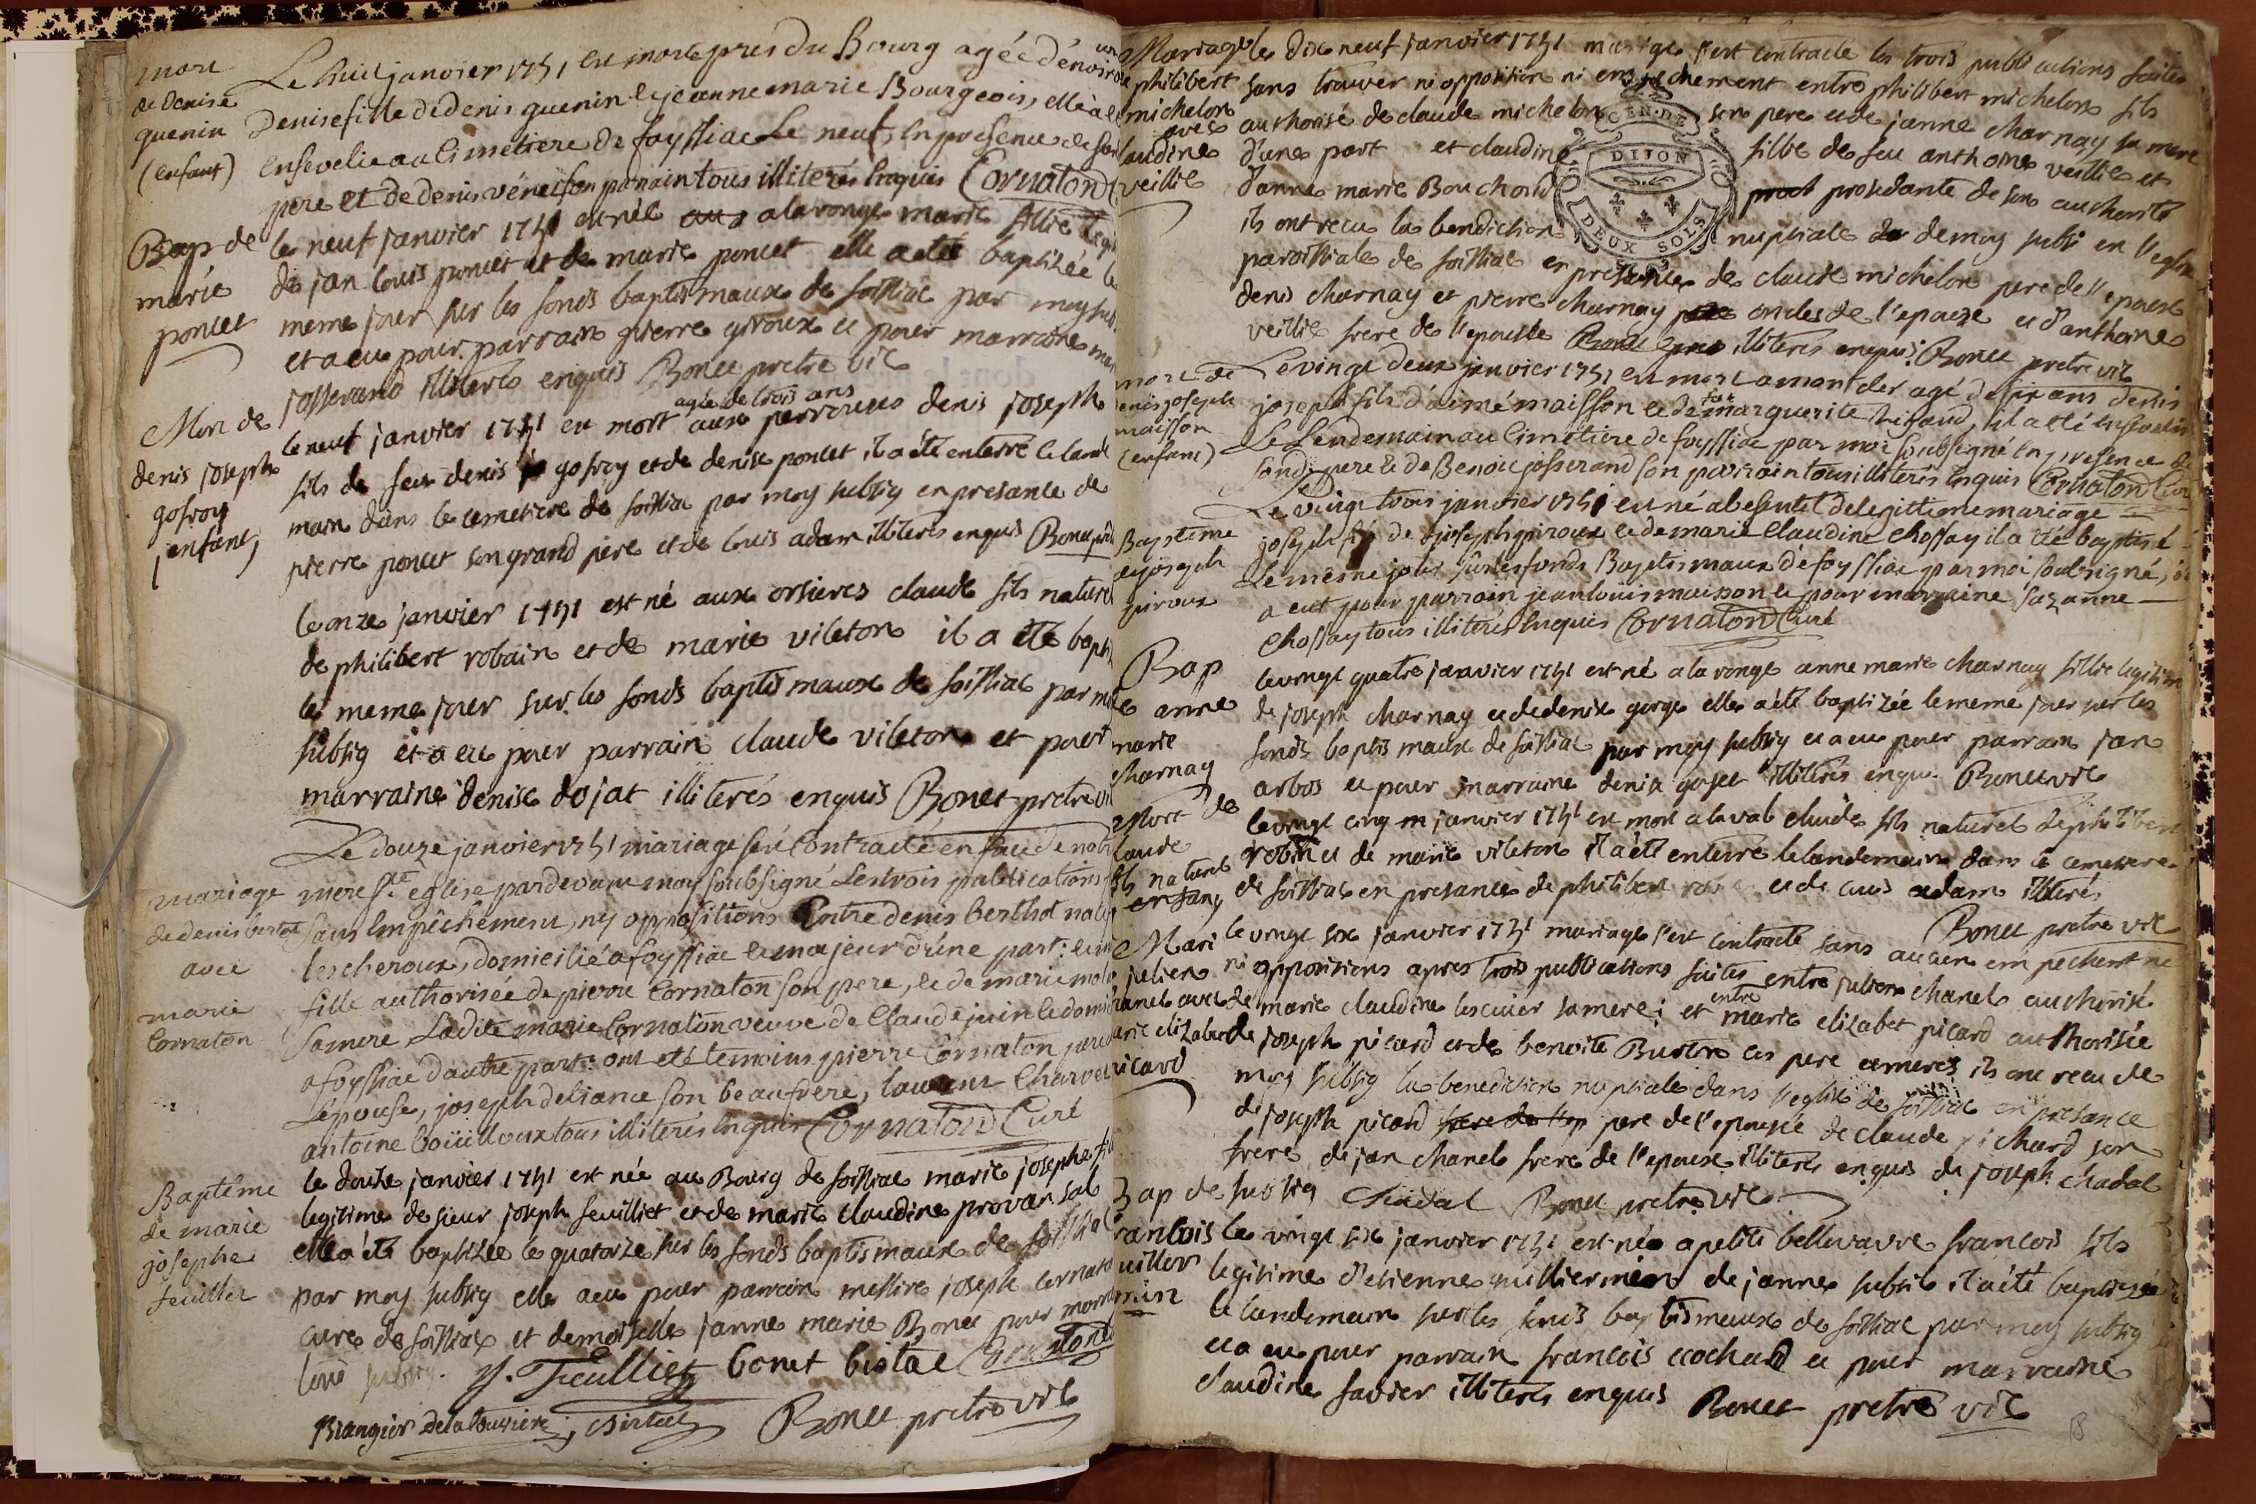 mort
de denise
quenin
(enfant)
Le huit janvier 1751 est morte pres du Bourg agée d'énviron un
denise fille de denis quenin et jeanne marie Bourgeois, elle à été
ensevelie au Cimetiere de foyssiac Le neuf, en présence de son
pere et de denis son parain tous illiterés Enquis Cornaton
Bap de
marie
poncet
le neuf janvier 1751 est née a la ronge marie fillie legit
de jan louis poncet et de marie poncet elle a etée baptizée le
meme jour sur les fonds baptismaux de foissiac par moy subs
et a eu pour parrain pierre giroux et pour marraine mar
josserand illiterés enquis Bonet pretre vic
Mort de
denis joseph
gofroy
(enfant)
agée de trois ans
le neuf janvier 1751 est mort aux perrouses denis joseph
fils de feu denis gofroy et de denise poncet il a été enterré le lande
main dans le cemetiere de foissiac par moy subsig en presance de
pierre poncet son grand pere et de louis adam illiterés enquis Bonet
le onze janvier 1751 est né aux orsieres claude fils naturel
de philibert robain et de marie vileton il a été bapti
le meme jour sur les fonds baptismaux de foissiac par moy
subsig et a eu pour parrain claude vileton et pour
marraine denise dojat illiterés enquis Bonet pretre vic
mariage
de denis bertot
avec
marie
Cornaton
Le douze janvier 1751 mariage s'est Contracté en face de notre
mere Ste eglise pardevant moy soubsigné Les trois publications
sans Empêchement, ny oppositions Entre denis Berthot natif
lescheroux, domicilié a foyssiac et majeur d'une part: et
fille authorisée de pierre Cornaton son pere, et de marie
sa mere Ladite marie Cornaton veuve de Claude juin et domi
a foyssiac d'autre part: ont eté temoins pierre Cornaton pere
L'epouse, joseph deliance son beaufrere, laurent Charvet
antoine boüilloux tous illiterés Enquis Cornaton Curé
Baptême
de marie
josephe
feuillet
le douze janvier 1751 est née au Bourg de foissiac marie josephe fil
legitime de sieur joseph feuilliet et de marie claudine provansal
elle a été baptizée le quatorze sur les fonds baptismaux de foissiac
par moy subsig elle a eu pour parrain messire joseph cornaton
curé de foissiac et demoiselle janne marie Bonet pour marr
J. Feuilliet bonet Cornaton
Bonet pretre vic
Mariage
de philibert
michelon
avec
claudine
veillie
le dix neuf janvier 1751 mariage s'est contracté les trois publications faites
sans trouver ni opposition ni empechement entre philibert michelon fils
authorisé de claude michelon son pere et de janne charnay sa mere
d'une part et claudine fillie de feu anthoine veillie et
d'anne marie Bouchard procedante de son authorité
ils ont recu la benediction nuptiale de moy subsi en l'eglise
paroissiale de foissiac en presance de claude michelon pere de l'epoux
denis charnay et pierre charnay oncles de l'epoux et d'anthoine
veillie frere de l'epouse illiterés enquis Bonet pretre vic
CEN. DE
DIJON
DEUX SOLS
mort de
denis joseph
maisson
(enfant)
Le vingt deux janvier 1751 est mort a montcler agé de six ans denis
joseph fils d'aimé maisson et de feu marguerite rigaud, il a eté Enseveli
Le Lendemain au Cimetiere de foyssiac par moi soubsigné en presence de
son dt pere et de Benoit josserand son parrain tous illiterés Enquis Cornaton Curé
Baptême
de joseph
piroux
Le vingt trois janvier 1751 est né de Legittime mariage
joseph fils de joseph piroux et de marie Claudine Chossay il a eté baptisé
Le même jour sur les fonds Baptismaux de foyssiac par moi soubsigné, il
a eut pour parrain jean louis maisson et pour marraine suzanne
Chossay tous illiterés Enquis Cornaton Curé
Bap
de anne
marie
charnay
le vingt quatre janvier 1751 est né a la ronge anne marie charnay fillie legitime
de joseph charnay et de denise gorge elle a été baptizée le meme jour sur les
fonds baptismaux de foissiac par moy subsig et a eu pour parrain jan
arbos et pour marraine denise illiterés enquis Bonet vic
Mort de
claude
fils naturel
enfant
le vingt cinq janvier 1751 est mort a la val claude fils naturel de philibert
robin et de marie vileton il a été enterré le landemain dans le cemetiere
de foissiac en presance de philibert robin et de louis adam illiterés
Bonet pretre vic
Mari
julien
chanel avec
marie elizabet
picard
le vingt six janvier 1751 mariage s'est contracté sans aucun empechement
ni oppositions apres trois publications faites entre julien chanel authorisé
de marie claudine lescuier sa mere; et entre marie elizabet picard authorisée
de joseph picard et de benoite Burtin ses pere et mere; ils ont recu de
moy subsig la benediction nuptiale dans l'eglise de foissiac en presance
de joseph picard pere de l'epouse de claude pichard son
frere de jan chanel frere de l'epoux illiterés enquis de joseph chadal
subsig Chadal Bonet pretre vic
Bap de
francois
guiller
min
le vingt six janvier 1751 est né a petite bellevavre francois fils
legitime d'etienne guilliermin de janne subtil il a été baptizée
le landemain sur les fonds baptismaux de foissiac par moy subsig
et a eu pour parrain francois cochard et pour marraine
claudine savier illiterés enquis Bonet pretre vic